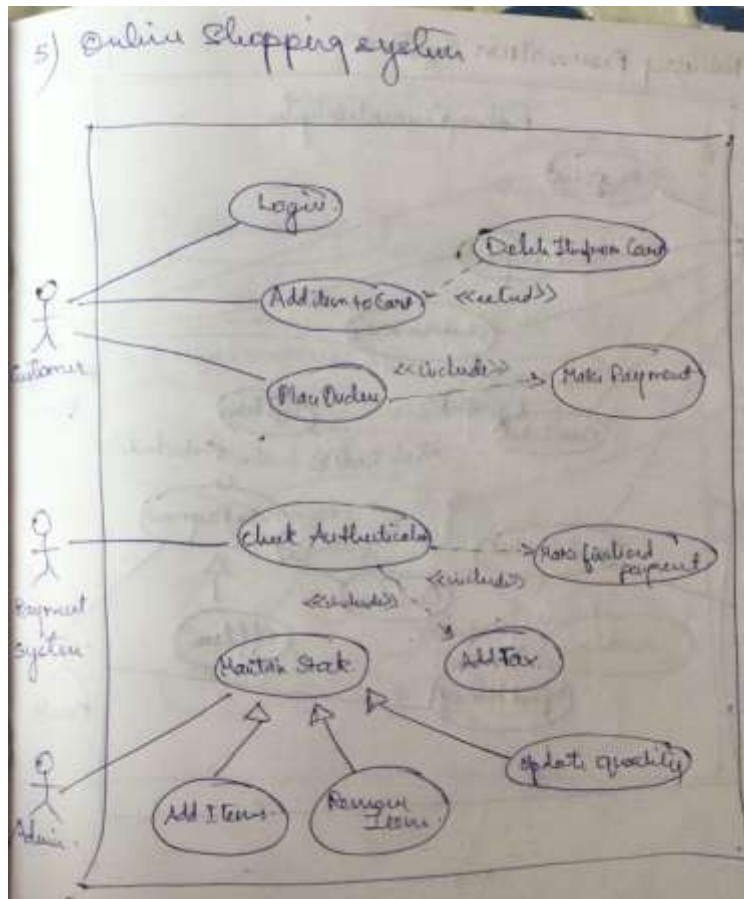 5) Online Shopping system
Login
Delete Item from Card
Add item to Cart
<<extend>>
Customer
<<include>>
Place Order
Make Payment
Check Authentication
Make
payment
<<include>>
<<include>>
Payment
System
Maintain Stock
Add Tax
Update quantity
Add Items
Remove
Item
Admin